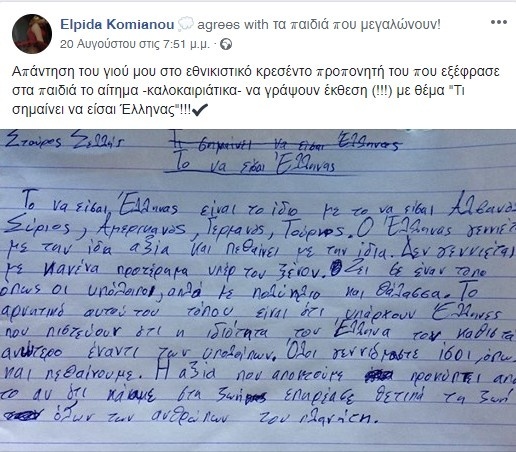 Elpida Komianou agrees with τα παιδιά που μεγαλώνουν!
20 Αυγούστου στις 7:51 μ.μ. ·
Απάντηση του γιού μου στο εθνικιστικό κρεσέντο προπονητή του που εξέφρασε
στα παιδιά το αίτημα -καλοκαιριάτικα- να γράψουν έκθεση (!!!) με θέμα "Τι
σημαίνει να είσαι Έλληνας"!!!✔
Σταύρος
Τι σημαίνει να είσαι Έλληνας
Το να είσαι Έλληνας
Το να είσαι Έλληνας είναι το ίδιο με το να είσαι Αλβανός
Σύριος, Αμερικανός, Γερμανός, Τούρκος. Ο Έλληνας γεννιέτα
με την ίδια αξία και πεθαίνει με την ίδια. Δεν γεννιέται
με κανένα προτέρημα υπέρ του ξένου. Ζει σε έναν τόπο
όπως οι υπόλοιποι, απλά με πολύ ήλιο και θάλασσα. Το
αρνητικό αυτού του τόπου είναι ότι υπάρχουν Έλληνες
που πιστεύουν ότι η ιδιότητα του Έλληνα τον καθιστά
ανώτερο έναντι των υπολοίπων. Όλοι γεννιόμαστε ίσοι, όπως
και πεθαίνουμε. Η αξία που αποκτούμε προκύπτει από
το αν ότι κάναμε στη ζωή μας επηρέασε θετικά τη ζωή
όλων των ανθρώπων του πλανήτη.